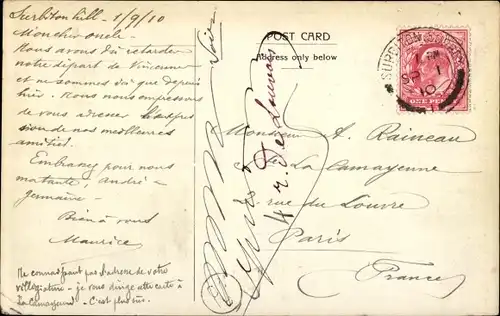 Surbiton hill - 1/9/10
Mon cher oncle -
Nous avons dû retarder
notre départ de Vincennes
et ne sommes ici que depuis
hier. Nous nous empressons
de vous adresser l'expres
sion de nos meilleures
amitiés.
Embrassez pour nous
ma tante, André -
Germaine -
Bien à vous
Maurice
Ne connaissant pas l'adresse de votre
villégiature - je vous dirige cette carte à
La Camayenne - C'est plus sûr.
POST CARD
Address only below
SURBITON
SP 1
10
ONE PENNY
4 r. Du Louvre
Monsieur A. Raineau
La Camayenne
4 rue du Louvre
Paris
France